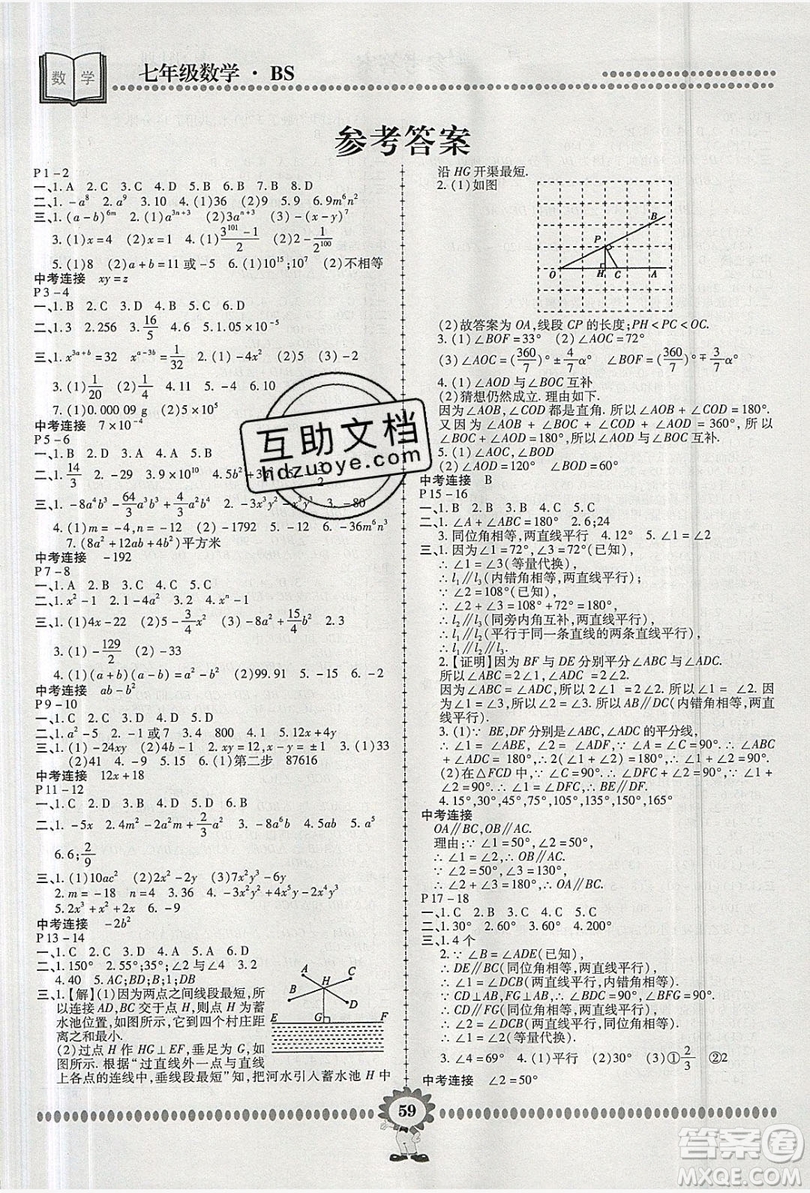 数 学
七年级数学·BS
参考答案
P 1 - 2
一、1. A 2. C 3. C 4. D 5. A 6. B 7. D 8. D
二、1. -a⁸ 2. 2 3. 10 4. (1)36 (2)9 5. 0 6. 10x²
三、1. (a-b)^{6m} (2)a^{3n+3} (2)3a^{n+3} (3)-(x-y)⁷
3. (1)x=4 (2)x=1 4. (1)\frac{3^{101}-1}{2} (2)2-\frac{1}{2^{100}}
5. (1)8 (2)a+b=11或-5 6. (1)10¹⁵;10⁷ (2)不相等
中考连接 xy=z
P 3 - 4
一、1. B 2. C 3. A 4. D 5. D 6. B
二、1. 3 2. 256 3. \frac{16}{5} 4. 3 5. 1.05×10⁻⁵
三、1. x^{3a+b}=32 x^{a-3b}=\frac{1}{32} 2. (1)-4x² (2)
3. (1)\frac{1}{20} (2)\frac{1}{4} 4. (1)-13 (2)
7. (1)0.000 09 g (2)
中考连接 7×10⁻⁴
P 5 - 6
一、1. C 2. B 3. D 4. C 5. D
二、1. \frac{14}{3} 2. -29 3. -9 4.
三、1. -8a⁴b³-\frac{64}{3}a³b³ 2. 3. 4. -80
5. (1)m=-4,n=-12 (2)-1792 6. (1)n=2 (2)377
7. (8a²+12ab+4b²)平方米
中考连接 -192
P 7 - 8
一、1. B 2. C 3. D 4. B 5. D
二、1. x²-1 2. 1-4a² 3. 4 4. 3 5. 10
三、1. (1)4x-22 (2)5-\frac{3}{4}x² (3)-8a²+\frac{15}{4}b² 2. 15
3. (1)-\frac{129}{2} (2)-3
4. (1)(a+b)(a-b)=a²-b² (2)99.91 5. -15 6. 5
中考连接 ab-b²
P 9 - 10
一、1. C 2. C 3. D 4. C 5. D
二、1. a²-5 2. -1或7 3. 4 800 4. 10x+4 5. 12x+4
三、1. (1)-24xy (2)-4xy-1 2. 1 3. ±xy 6. (1)33
(2)41 (4)90 5. (1)第二步 87616
中考连接 12x+18
P 11 - 12
一、1. C 2. D 3. C 4. D 5. B
二、1. -5x 2. 4m⁷-2m²+\frac{2}{3}a² 3. -8x² 4. 5x²y 5. a⁵
6. 6;\frac{2}{9}
三、1. (1)10ac² (2)10c² (3)-2a+6b-1
2. 8xm 3. -x+y 4. -3x²y²+6x³y⁵-x²
5. 2x³+x²-2x 6. (1)9x⁷y²-2x²y-3 (2)7x⁴-x-5 7. -9
中考连接 -2b²
P 13 - 14
一、1. C 2. C 3. D 4. A 5. C
二、1. 150° 2. 55°;35° 3. ∠2 ∠4
4. 40 5. AC;BD;B;D
三、1.【解】(1)因为两点之间线段最短,所
以连接 AD,BC 交于点 H,则点 H 为蓄
水池位置,如图所示,它到四个村庄距
离之和最小.
(2)过点 H 作 HG⊥EF,垂足为 G,如
图所示.根据“过直线外一点与直线
上各点的连线中,垂线段最短”知,把河水引入蓄水池 H 中
A C B D H E G F
沿 HG 开渠最短.
2. (1)如图
B P O H C A
(2)故答案为 OA,线段 CP 的长度;PH<PC<OC.
3. (1)∠BOF=33° (2)∠AOC=72°
(3)∠AOC=(\frac{360}{7})°±\frac{4}{7}α° ∠BOF=(\frac{360}{7})°∓\frac{3}{7}α°
4. (1)∠AOD 与∠BOC 互补
(2)猜想仍然成立.理由如下.
因为∠AOB,∠COD 都是直角.所以∠AOB+∠COD=180°.
又因为∠AOD+∠BOC+∠AOB+∠COD=360°,所以∠AOD
+∠BOC=180°.所以∠AOD 和∠BOC 互补.
5. (1)∠AOC,∠BOD
(2)∠AOD=120° ∠BOF=60°
中考连接 B
P 15 - 16
一、1. C 2. B 3. B 4. C 5. A
二、1. ∠A+∠ABC=180° 2. ∠B=∠DCE
3. 同位角相等,两直线平行 4. 12° 5. ∠1=∠2
三、1. 因为∠1=72°,∠3=72°(已知),
∴∠1=∠3(等量代换),
∴l₁∥l₃(内错角相等,两直线平行);
∵∠2=108°(已知),
∴∠2+∠3=108°+72°=180°,
∴l₂∥l₃(同旁内角互补,两直线平行),
∴l₁∥l₂(平行于同一条直线的两条直线平行)
2.【证明】因为 BF 与 DE 分别平分∠ABC 与∠ADC.
所以∠ABC=2∠1,∠ADC=2∠3,
因为∠ABC=∠ADC,所以 2∠1=2∠3,所以∠1=∠3.
因为∠1=∠2,所以∠2=∠3.所以 AB∥DC(内错角相等,两直
线平行).
3. (1)∵BE,DF 分别是∠ABC,∠ADC 的平分线,
∴∠1=∠ABE,∠2=∠ADF,∵∠ADC+∠ABC=180°,
∴2(∠1+∠2)=180°,∴∠1+∠2=90°;
(2)在△FCD 中,∵∠C=90°,∴∠DFC+∠2=90°,∵∠1+
∠2=90°,∴∠1=∠DFC,∴BE∥DF
4. 15°,30°,45°,75°,105°,135°,150°,165°
中考连接
OA∥BC,OB∥AC.
理由:∵∠1=50°,∠2=50°,
∴∠1=∠2,∴OB∥AC,
∵∠2=50°,∠3=130°,
∴∠2+∠3=180°,∴OA∥BC.
P 17 - 18
一、1. C 2. B 3. D 4. C 5. C
二、1. 30° 2. 60° 3. 80° 4. 90°
三、1. 4 个
2. ∵∠B=∠ADE(已知),
∴DE∥BC(同位角相等,两直线平行),
∴∠EDC=∠DCB(两直线平行,内错角相等),
∵CD⊥AB,FG⊥AB,
∴CD∥FG(同位角相等,两直线平行),
∴∠2=∠DCB(两直线平行,同位角相等),
∴∠EDC=∠GFB.
3. ∠4=69° 4. (1)平行 (2)30 (3)①\frac{2}{3} ②2
中考连接 ∠2=50°
59
互助文档
hdzuoye.com
答案圈
MXQE.COM